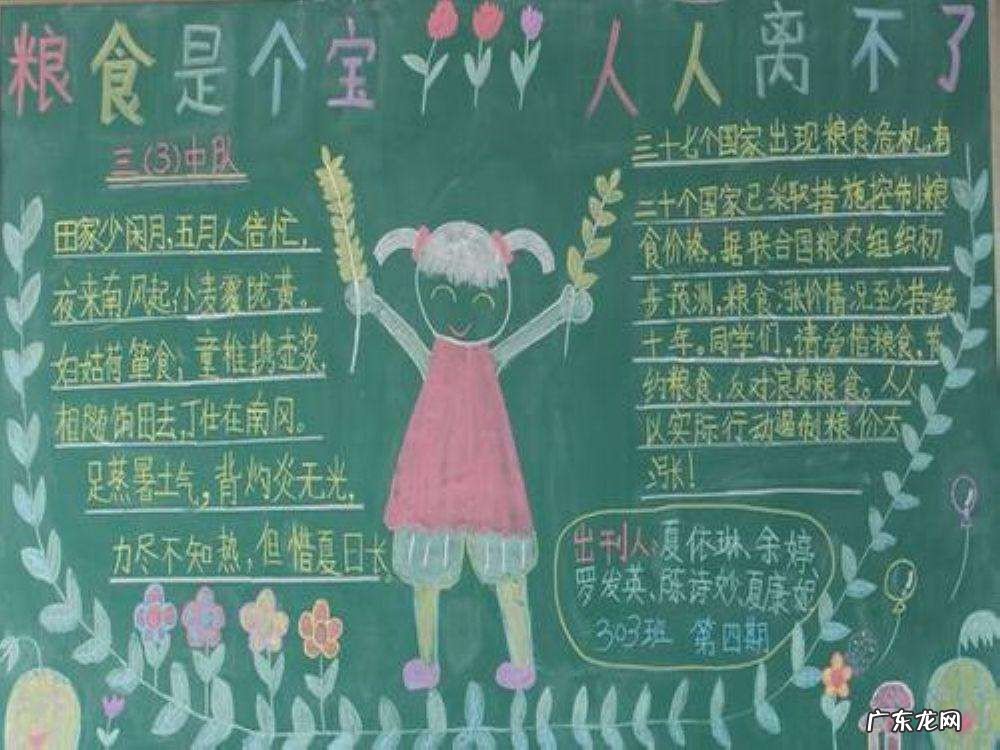 粮食是个宝 人人离不了
三(3)中队
田家少闲月,五月人倍忙,
夜来南风起小麦覆陇黄。
妇姑荷箪食,童稚携壶浆,
相随饷田去,丁壮在南冈。
足蒸暑土气,背灼炎天光,
力尽不知热,但惜夏日长
三十七个国家出现粮食危机,有
二十个国家已采取措施控制粮
食价格。据联合国粮农组织初
步预测,粮食涨价情况至少持续
十年。同学们,请爱惜粮食,节
约粮食,反对浪费粮食。人人
以实际行动遏制粮价大
涨!
出刊人:夏依琳、余婷、
罗发英、陈诗妙、夏康
303班 第四期
广东龙网